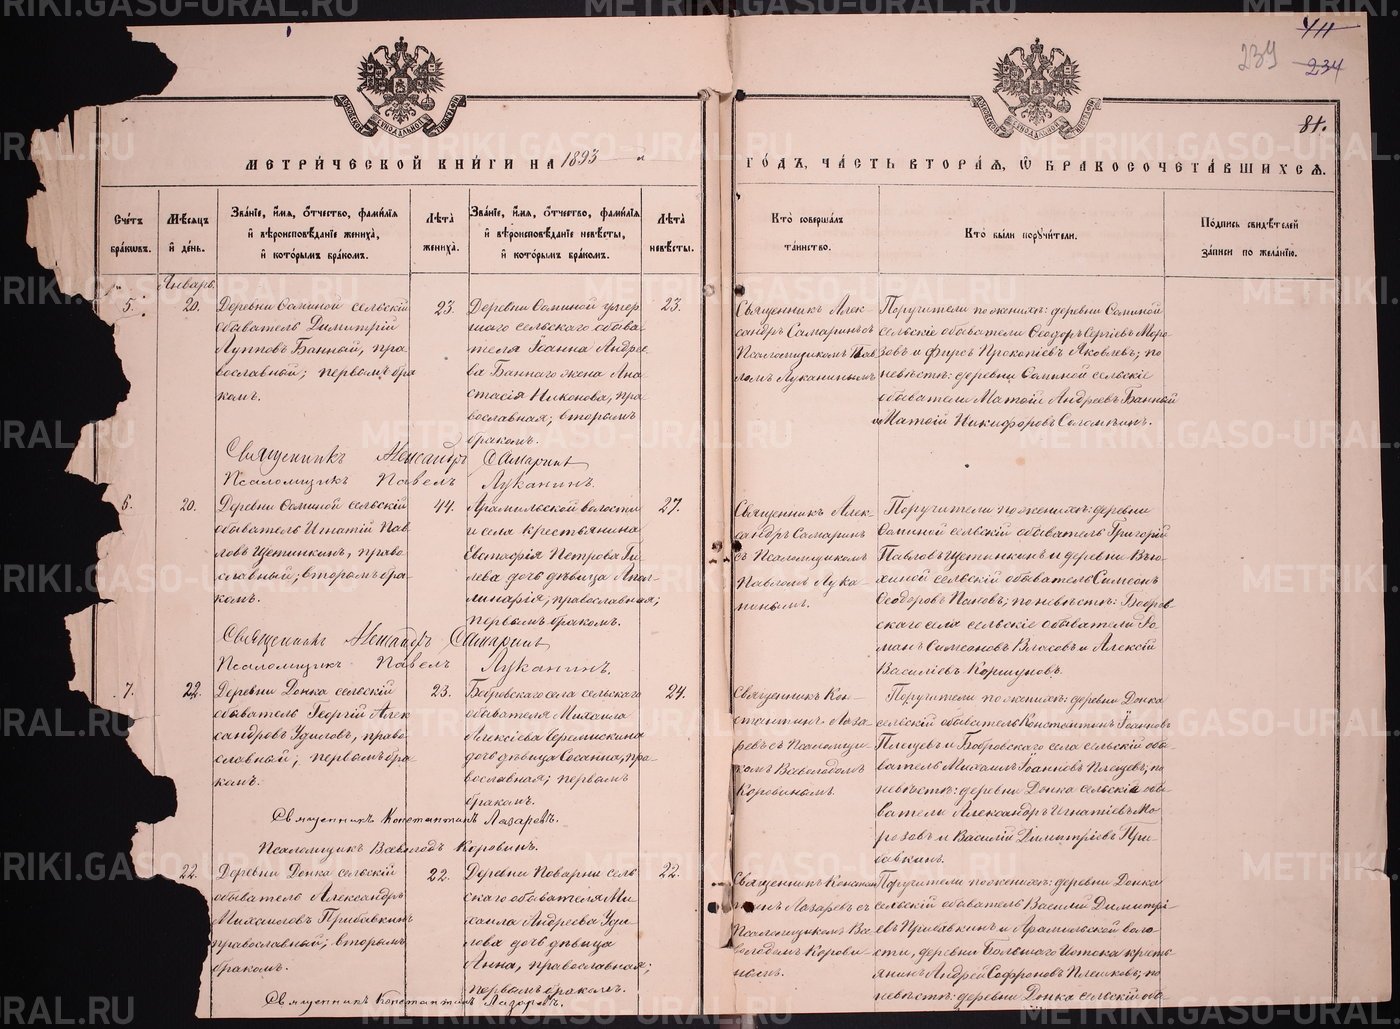 239
411
234
81.
МЕТРИ́ЧЕСКОЙ КНИ́ГИ НА 1893 й
ГО́ДЪ, ЧА́СТЬ ВТОРА́Ѧ, Ѽ БРАКОСОЧЕТА́ВШИХСѦ.
Сче́тъ бра́ковъ.
Мѣ́сѧцъ и҆ де́нь.
Зва́нїе, и҆́мѧ, ѻ҆́тчество, фами́лїѧ и҆ вѣроисповѣ́данїе жениха̀, и҆ кото́рымъ бра́комъ.
Лѣ́та жениха̀.
Зва́нїе, и҆́мѧ, ѻ҆́тчество, фами́лїѧ и҆ вѣроисповѣ́данїе невѣ́сты, и҆ кото́рымъ бра́комъ.
Лѣ́та невѣ́сты.
Кто̀ соверша́лъ та́инство.
Кто̀ бы́ли поручи́тели.
По́дпись свидѣ́телей за́писи по жела́нїю.
Январь
5.
20.
Деревни Фоминой сельскій
обыватель Димитрій
Лупповъ Банный, пра-
вославный; первымъ бра
комъ.
23.
Деревни Фоминой умер-
шаго сельскаго обыва-
теля Іоанна Андрее-
ва Баннаго жена Ана-
стасія Никонова, пра-
вославная; вторымъ
бракомъ.
23.
Священникъ Алек-
сандръ Самаринъ съ
Псаломщикомъ Пав
ломъ Луканинымъ
Поручители по женихѣ: деревни Фоминой
сельскіе обыватели Ѳеодоръ Сергіевъ Моро-
зовъ и Фирсъ Прокопіевъ Яковлевъ; по
невѣстѣ: деревни Фоминой сельскіе
обыватели Матѳій Андреевъ Банный
и Матѳій Никифоровъ Соломеинъ.
Священникъ Александръ Самаринъ
Псаломщикъ Павелъ Луканинъ.
6.
20.
Деревни Фоминой сельскій
обыватель Игнатій Пав
ловъ Щетинкинъ, право-
славный; вторымъ бра-
комъ.
44.
Арамильской волости
и села крестьянина
Евстафія Петрова Ги-
лева дочь дѣвица Апол-
линарія; православная;
первымъ бракомъ.
27.
Священникъ Алек-
сандръ Самаринъ
съ Псаломщикомъ
Павломъ Лука-
нинымъ.
Поручители по женихѣ: деревни
Фоминой сельскій обыватель Григорій
Павловъ Щетинкинъ и деревни Вью-
хиной сельскій обыватель Симеонъ
Ѳеодоровъ Пановъ; по невѣстѣ: Бобров-
скаго села сельскіе обыватели Ро-
манъ Симеоновъ Власовъ и Алексій
Василіевъ Коршуновъ.
Священникъ Александръ Самаринъ
Псаломщикъ Павелъ Луканинъ.
7.
22.
Деревни Донка сельскій
обыватель Георгій Алек
сандровъ Удиловъ, право-
славный; первымъ бра
комъ.
23.
Бобровскаго села сельскаго
обывателя Михаила
Алексіева Черемискина
дочь дѣвица Сосанна, пра-
вославная; первымъ
бракомъ.
24.
Священникъ Кон-
стантинъ Лаза-
ревъ съ Псаломщи-
комъ Всеволодомъ
Коровинымъ.
Поручители по женихѣ: деревни Донка
сельскій обыватель Константинъ Іоанновъ
Плещевъ и Бобровскаго села сельскій обы-
ватель Михаилъ Іоанновъ Плещевъ; по
невѣстѣ: деревни Донка сельскіе обы-
ватели Александръ Игнатіевъ Мо-
розовъ и Василій Димитріевъ При-
бавкинъ.
Священникъ Константинъ Лазаревъ.
Псаломщикъ Всеволодъ Коровинъ.
22.
Деревни Донка сельскій
обыватель Александръ
Михаиловъ Прибавкинъ
православный; вторымъ
бракомъ.
22.
Деревни Поварни сель
скаго обывателя Ми-
хаила Андреева Уди-
лова дочь дѣвица
Анна, православная;
первымъ бракомъ.
22.
Священникъ Констан
тинъ Лазаревъ съ
Псаломщикомъ Все
володомъ Корови-
нымъ.
Поручители по женихѣ: деревни Донка
сельскій обыватель Василій Димитрі-
евъ Прибавкинъ и Арамильской воло-
сти, деревни Большаго Истока кресть
янинъ Андрей Софроновъ Плешковъ; по
невѣстѣ: деревни Донка сельскій обы-
Священникъ Константинъ Лазаревъ.
METRIKI.GASO-URAL.RU